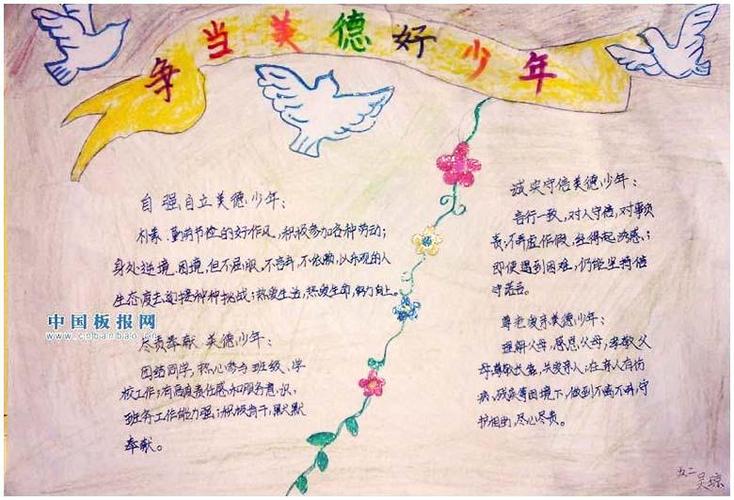 争当美德好少年
自强自立美德少年：
朴素、勤劳节俭的好作风，积极参加各种劳动；
身处逆境、困境，但不屈服、不放弃、不依赖，以乐观的人
生态度去迎接种种挑战；热爱生活，热爱生命，努力向上。
尽责奉献美德少年：
团结同学，热心参与班级、学
校工作；有高度责任感和服务意识，
班务工作能力强；积极肯干，默默
奉献。
诚实守信美德少年：
言行一致，对人守信，对事负
责；不弄虚作假，经得起诱惑；
即使遇到困难，仍能坚持信
守诺言。
尊老爱亲美德少年：
理解父母，感恩父母，孝敬父
母尊敬长辈，关爱亲人；在亲人有伤
病、残疾等困境下，做到不离不弃，守
护相助，尽心尽责。
中国板报网
www.cnbanbao.cn
五二
吴琼